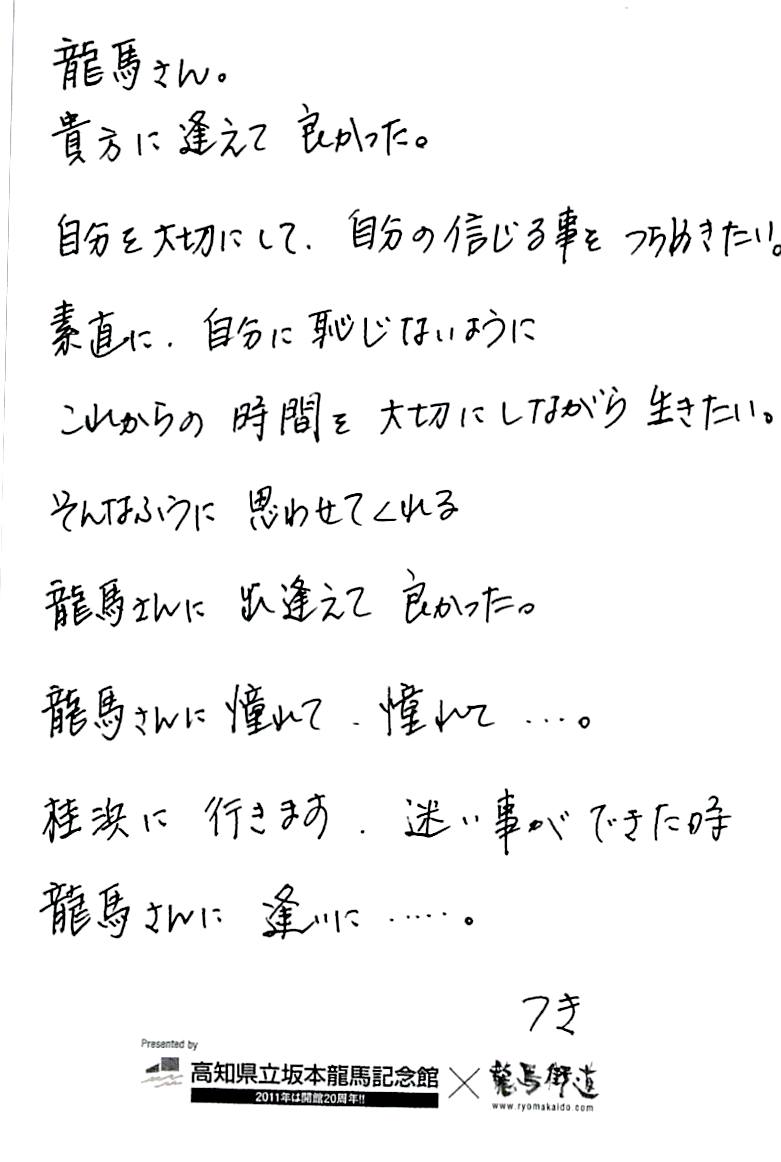 龍馬さん。
貴方に逢えて 良かった。
自分を大切にして、自分の信じる事を つらぬきたい。
素直に、自分に恥じないように
これからの 時間を 大切にしながら 生きたい。
そんなふうに 思わせてくれる
龍馬さんに 出逢えて 良かった。
龍馬さんに 憧れて、憧れて …。
桂浜に 行きます、迷い事ができた時
龍馬さんに 逢いに ……。
つき
Presented by
高知県立坂本龍馬記念館 × 龍馬街道
2011年は開館20周年!!
www.ryomakaido.com